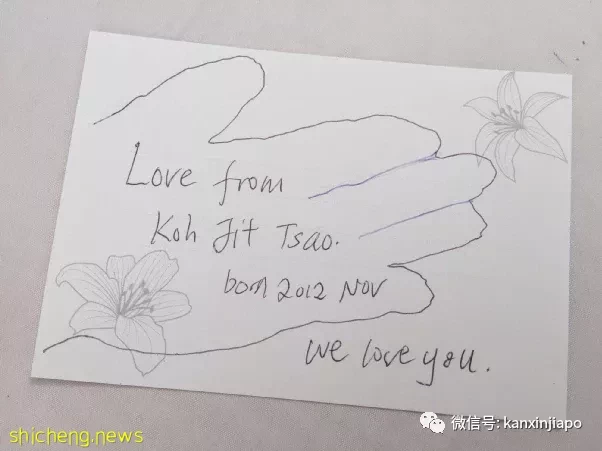 Love from
Koh Jit Tsao.
born 2012 Nov
We love you.
微信号: kanxinjiapo
shicheng.news